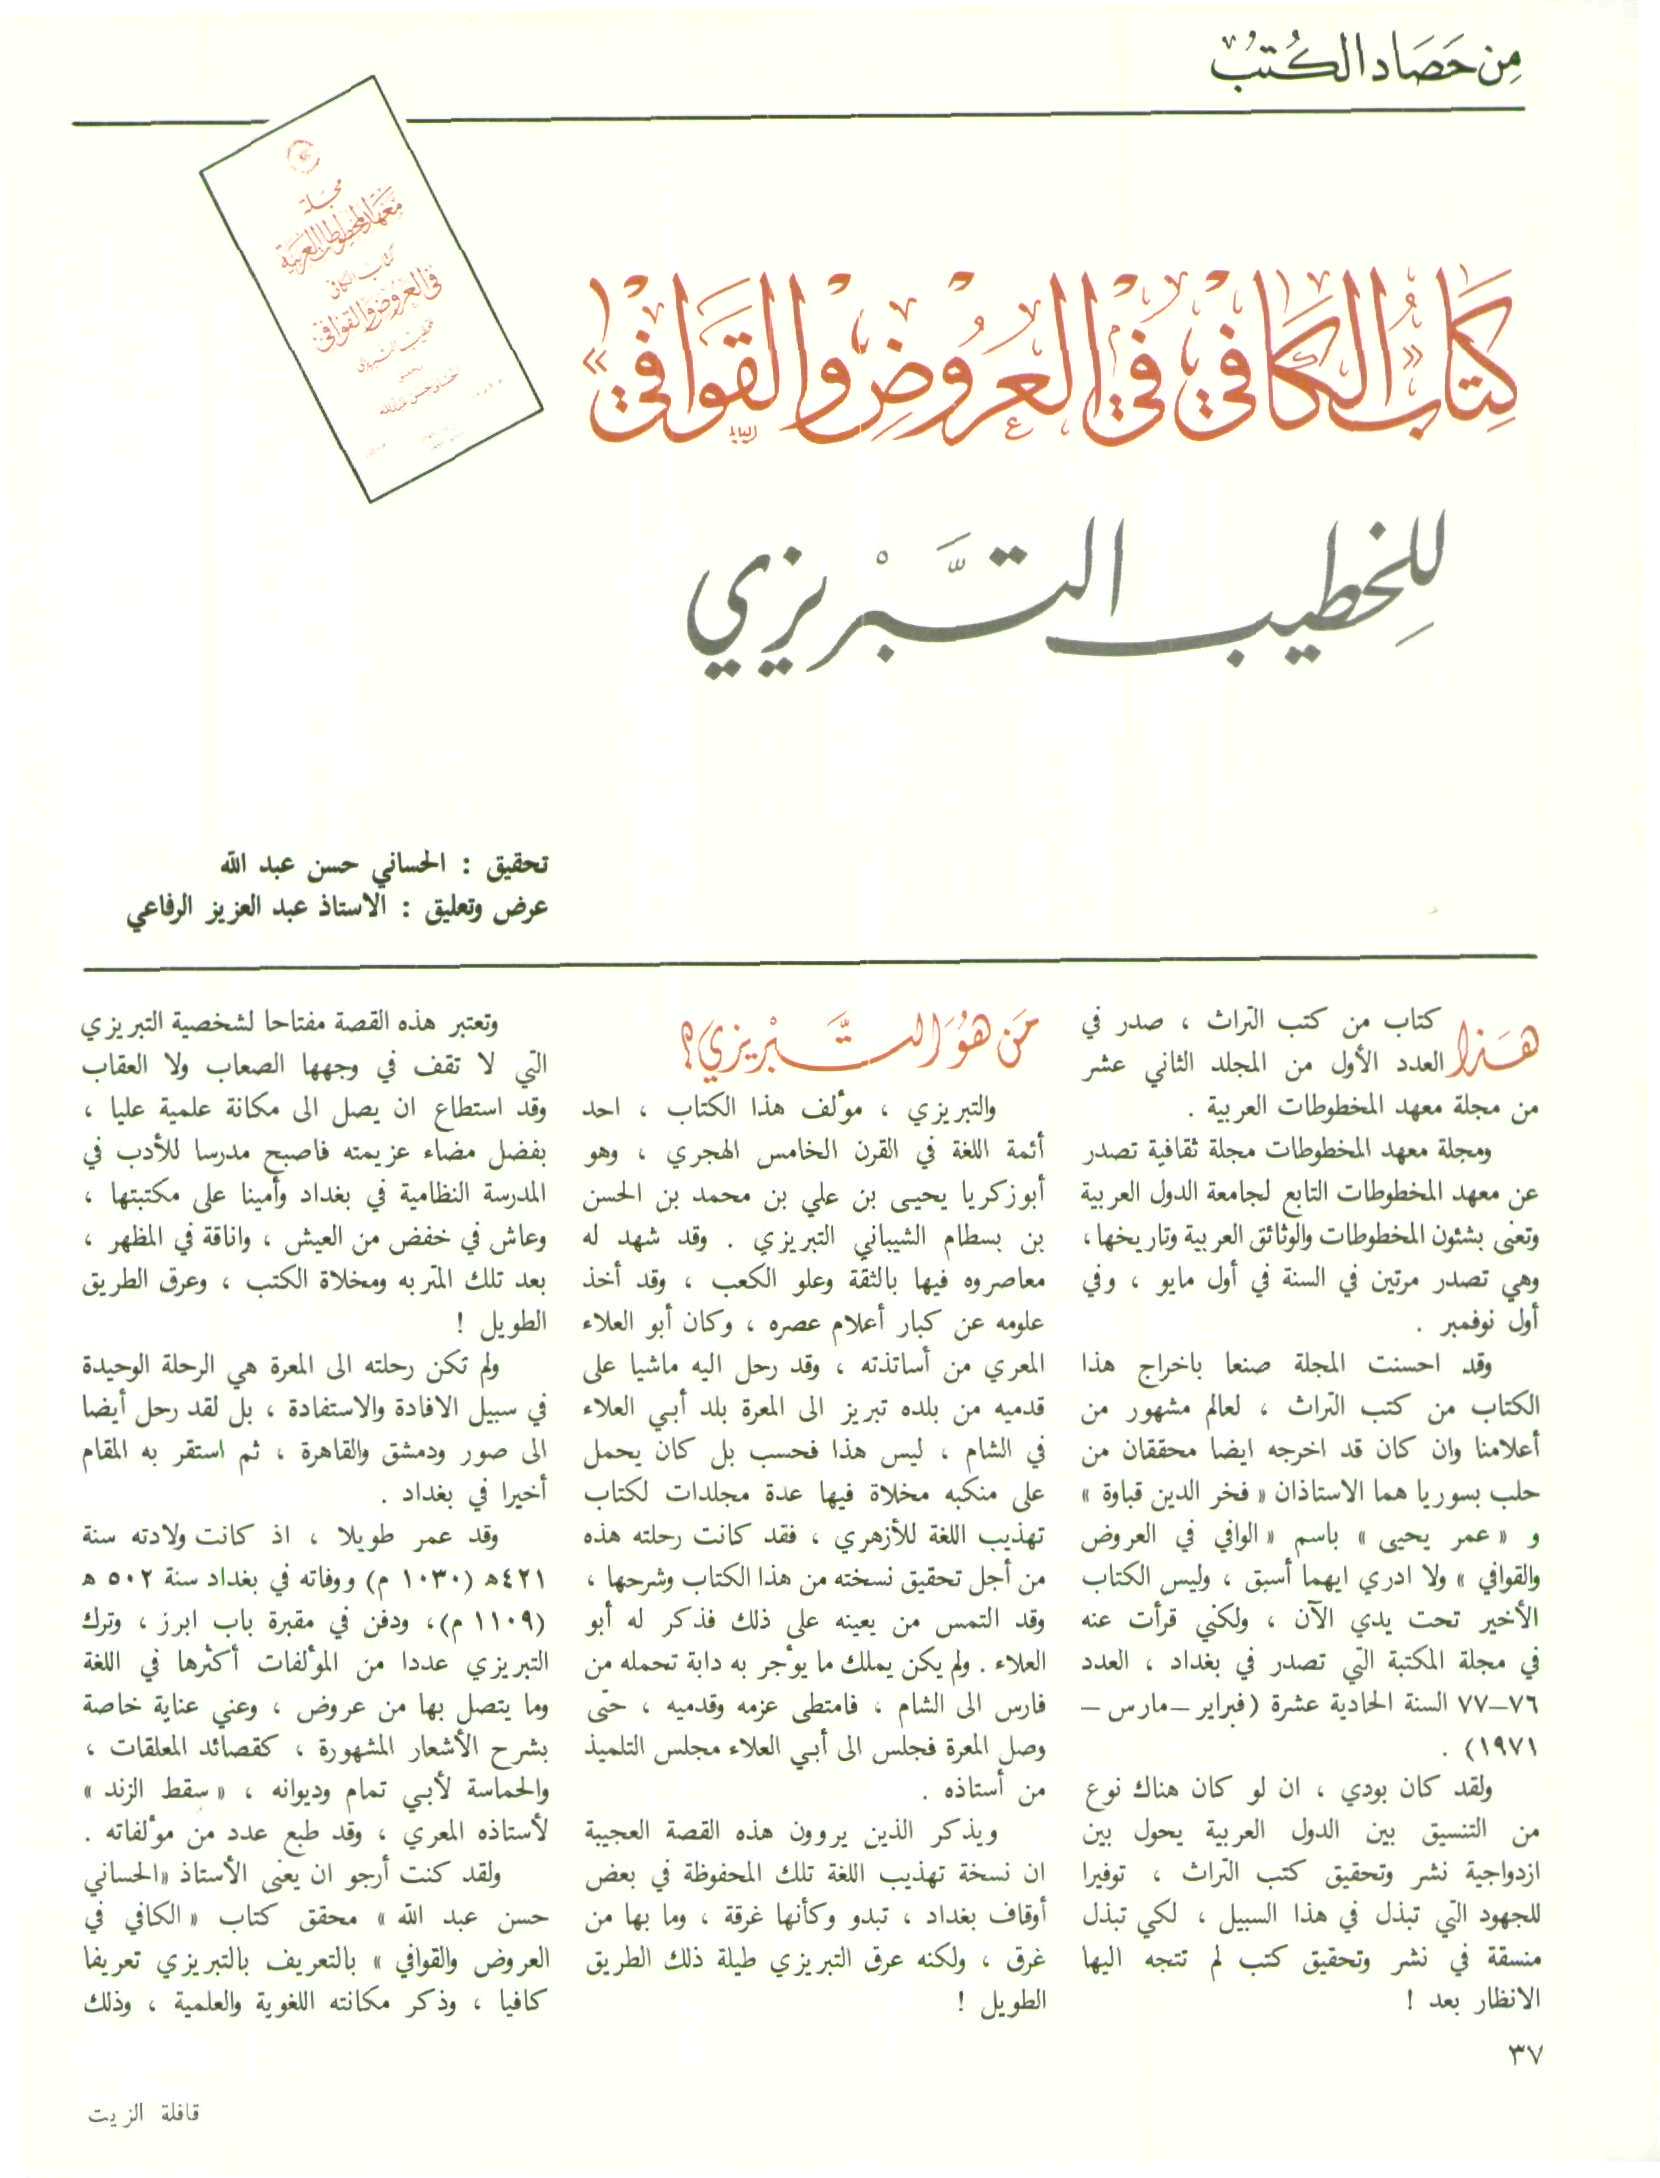 من حصاد الكتب
مجلة
معهد المخطوطات العربية
كتاب الكافي
في العروض والقوافي
كتاب «الكافي في العروض والقوافي»
للخطيب التبريزي
تحقيق : الحساني حسن عبد الله
عرض وتعليق : الاستاذ عبد العزيز الرفاعي
هذا كتاب من كتب التراث ، صدر في
العدد الأول من المجلد الثاني عشر
من مجلة معهد المخطوطات العربية .
ومجلة معهد المخطوطات مجلة ثقافية تصدر
عن معهد المخطوطات التابع لجامعة الدول العربية
وتعنى بشئون المخطوطات والوثائق العربية وتاريخها،
وهي تصدر مرتين في السنة في أول مايو ، وفي
أول نوفمبر .
وقد احسنت المجلة صنعا باخراج هذا
الكتاب من كتب التراث ، لعالم مشهور من
أعلامنا وان كان قد اخرجه ايضا محققان من
حلب بسوريا هما الاستاذان « فخر الدين قباوة »
و « عمر يحيى » باسم « الوافي في العروض
والقوافي » ولا ادري ايهما أسبق ، وليس الكتاب
الأخير تحت يدي الآن ، ولكني قرأت عنه
في مجلة المكتبة التي تصدر في بغداد ، العدد
٧٦–٧٧ السنة الحادية عشرة (فبراير – مارس –
١٩٧١) .
ولقد كان بودي ، ان لو كان هناك نوع
من التنسيق بين الدول العربية يحول بين
ازدواجية نشر وتحقيق كتب التراث ، توفيرا
للجهود التي تبذل في هذا السبيل ، لكي تبذل
منسقة في نشر وتحقيق كتب لم تتجه اليها
الانظار بعد !
من هو التبريزي؟
والتبريزي ، مؤلف هذا الكتاب ، احد
أئمة اللغة في القرن الخامس الهجري ، وهو
أبوزكريا يحيى بن علي بن محمد بن الحسن
بن بسطام الشيباني التبريزي . وقد شهد له
معاصروه فيها بالثقة وعلو الكعب ، وقد أخذ
علومه عن كبار أعلام عصره ، وكان أبو العلاء
المعري من أساتذته ، وقد رحل اليه ماشيا على
قدميه من بلده تبريز الى المعرة بلد أبي العلاء
في الشام ، ليس هذا فحسب بل كان يحمل
على منكبه مخلاة فيها عدة مجلدات لكتاب
تهذيب اللغة للأزهري ، فقد كانت رحلته هذه
من أجل تحقيق نسخته من هذا الكتاب وشرحها ،
وقد التمس من يعينه على ذلك فذكر له أبو
العلاء . ولم يكن يملك ما يؤجر به دابة تحمله من
فارس الى الشام ، فامتطى عزمه وقدميه ، حتى
وصل المعرة فجلس الى أبي العلاء مجلس التلميذ
من أستاذه .
ويذكر الذين يروون هذه القصة العجيبة
ان نسخة تهذيب اللغة تلك المحفوظة في بعض
أوقاف بغداد ، تبدو وكأنها غرقة ، وما بها من
غرق ، ولكنه عرق التبريزي طيلة ذلك الطريق
الطويل !
وتعتبر هذه القصة مفتاحا لشخصية التبريزي
التي لا تقف في وجهها الصعاب ولا العقاب
وقد استطاع ان يصل الى مكانة علمية عليا ،
بفضل مضاء عزيمته فاصبح مدرسا للأدب في
المدرسة النظامية في بغداد وأمينا على مكتبتها ،
وعاش في خفض من العيش ، واناقة في المظهر ،
بعد تلك المتربه ومخلاة الكتب ، وعرق الطريق
الطويل !
ولم تكن رحلته الى المعرة هي الرحلة الوحيدة
في سبيل الافادة والاستفادة ، بل لقد رحل أيضا
الى صور ودمشق والقاهرة ، ثم استقر به المقام
أخيرا في بغداد .
وقد عمر طويلا ، اذ كانت ولادته سنة
٤٢١ه (١٠٣٠ م) ووفاته في بغداد سنة ٥٠٢ ه
(١١٠٩ م)، ودفن في مقبرة باب ابرز ، وترك
التبريزي عددا من المؤلفات أكثرها في اللغة
وما يتصل بها من عروض ، وعني عناية خاصة
بشرح الأشعار المشهورة ، كقصائد المعلقات ،
والحماسة لأبي تمام وديوانه ، « سقط الزند »
لأستاذه المعري ، وقد طبع عدد من مؤلفاته .
ولقد كنت أرجو ان يعنى الأستاذ «الحساني
حسن عبد الله » محقق كتاب « الكافي في
العروض والقوافي » بالتعريف بالتبريزي تعريفا
كافيا ، وذكر مكانته اللغوية والعلمية ، وذلك
٣٧
قافلة الزيت